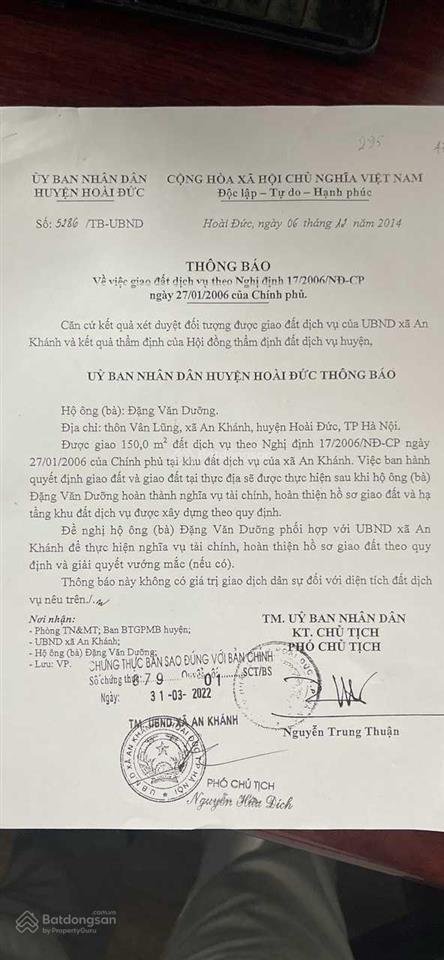 295
ỦY BAN NHÂN DÂN
HUYỆN HOÀI ĐỨC
CỘNG HÒA XÃ HỘI CHỦ NGHĨA VIỆT NAM
Độc lập – Tự do – Hạnh phúc
Số: 5286 /TB-UBND
Hoài Đức, ngày 06 tháng 12 năm 2014
THÔNG BÁO
Về việc giao đất dịch vụ theo Nghị định 17/2006/NĐ-CP
ngày 27/01/2006 của Chính phủ.
Căn cứ kết quả xét duyệt đối tượng được giao đất dịch vụ của UBND xã An
Khánh và kết quả thẩm định của Hội đồng thẩm định đất dịch vụ huyện,
UỶ BAN NHÂN DÂN HUYỆN HOÀI ĐỨC THÔNG BÁO
Hộ ông (bà): Đặng Văn Dưỡng.
Địa chỉ: thôn Vân Lũng, xã An Khánh, huyện Hoài Đức, TP Hà Nội.
Được giao 150,0 m² đất dịch vụ theo Nghị định 17/2006/NĐ-CP ngày
27/01/2006 của Chính phủ tại khu đất dịch vụ của xã An Khánh. Việc ban hành
quyết định giao đất và giao đất tại thực địa sẽ được thực hiện sau khi hộ ông (bà)
Đặng Văn Dưỡng hoàn thành nghĩa vụ tài chính, hoàn thiện hồ sơ giao đất và hạ
tầng khu đất dịch vụ được xây dựng theo quy định.
Đề nghị hộ ông (bà) Đặng Văn Dưỡng phối hợp với UBND xã An
Khánh để thực hiện nghĩa vụ tài chính, hoàn thiện hồ sơ giao đất theo quy
định và giải quyết vướng mắc (nếu có).
Thông báo này không có giá trị giao dịch dân sự đối với diện tích đất dịch
vụ nêu trên./.
Nơi nhận:
- Phòng TN&MT; Ban BTGPMB huyện;
- UBND xã An Khánh;
- Hộ ông (bà) Đặng Văn Dưỡng;
- Lưu: VP.
TM. UỶ BAN NHÂN DÂN
KT. CHỦ TỊCH
PHÓ CHỦ TỊCH
Nguyễn Trung Thuận
CHỨNG THỰC BẢN SAO ĐÚNG VỚI BẢN CHÍNH
Số chứng thực: 879 Quyển số: 01 SCT/BS
Ngày: 31-03-2022
TM. UBND XÃ AN KHÁNH
PHÓ CHỦ TỊCH
Nguyễn Hữu Đích
Batdongsan
by PropertyGuru